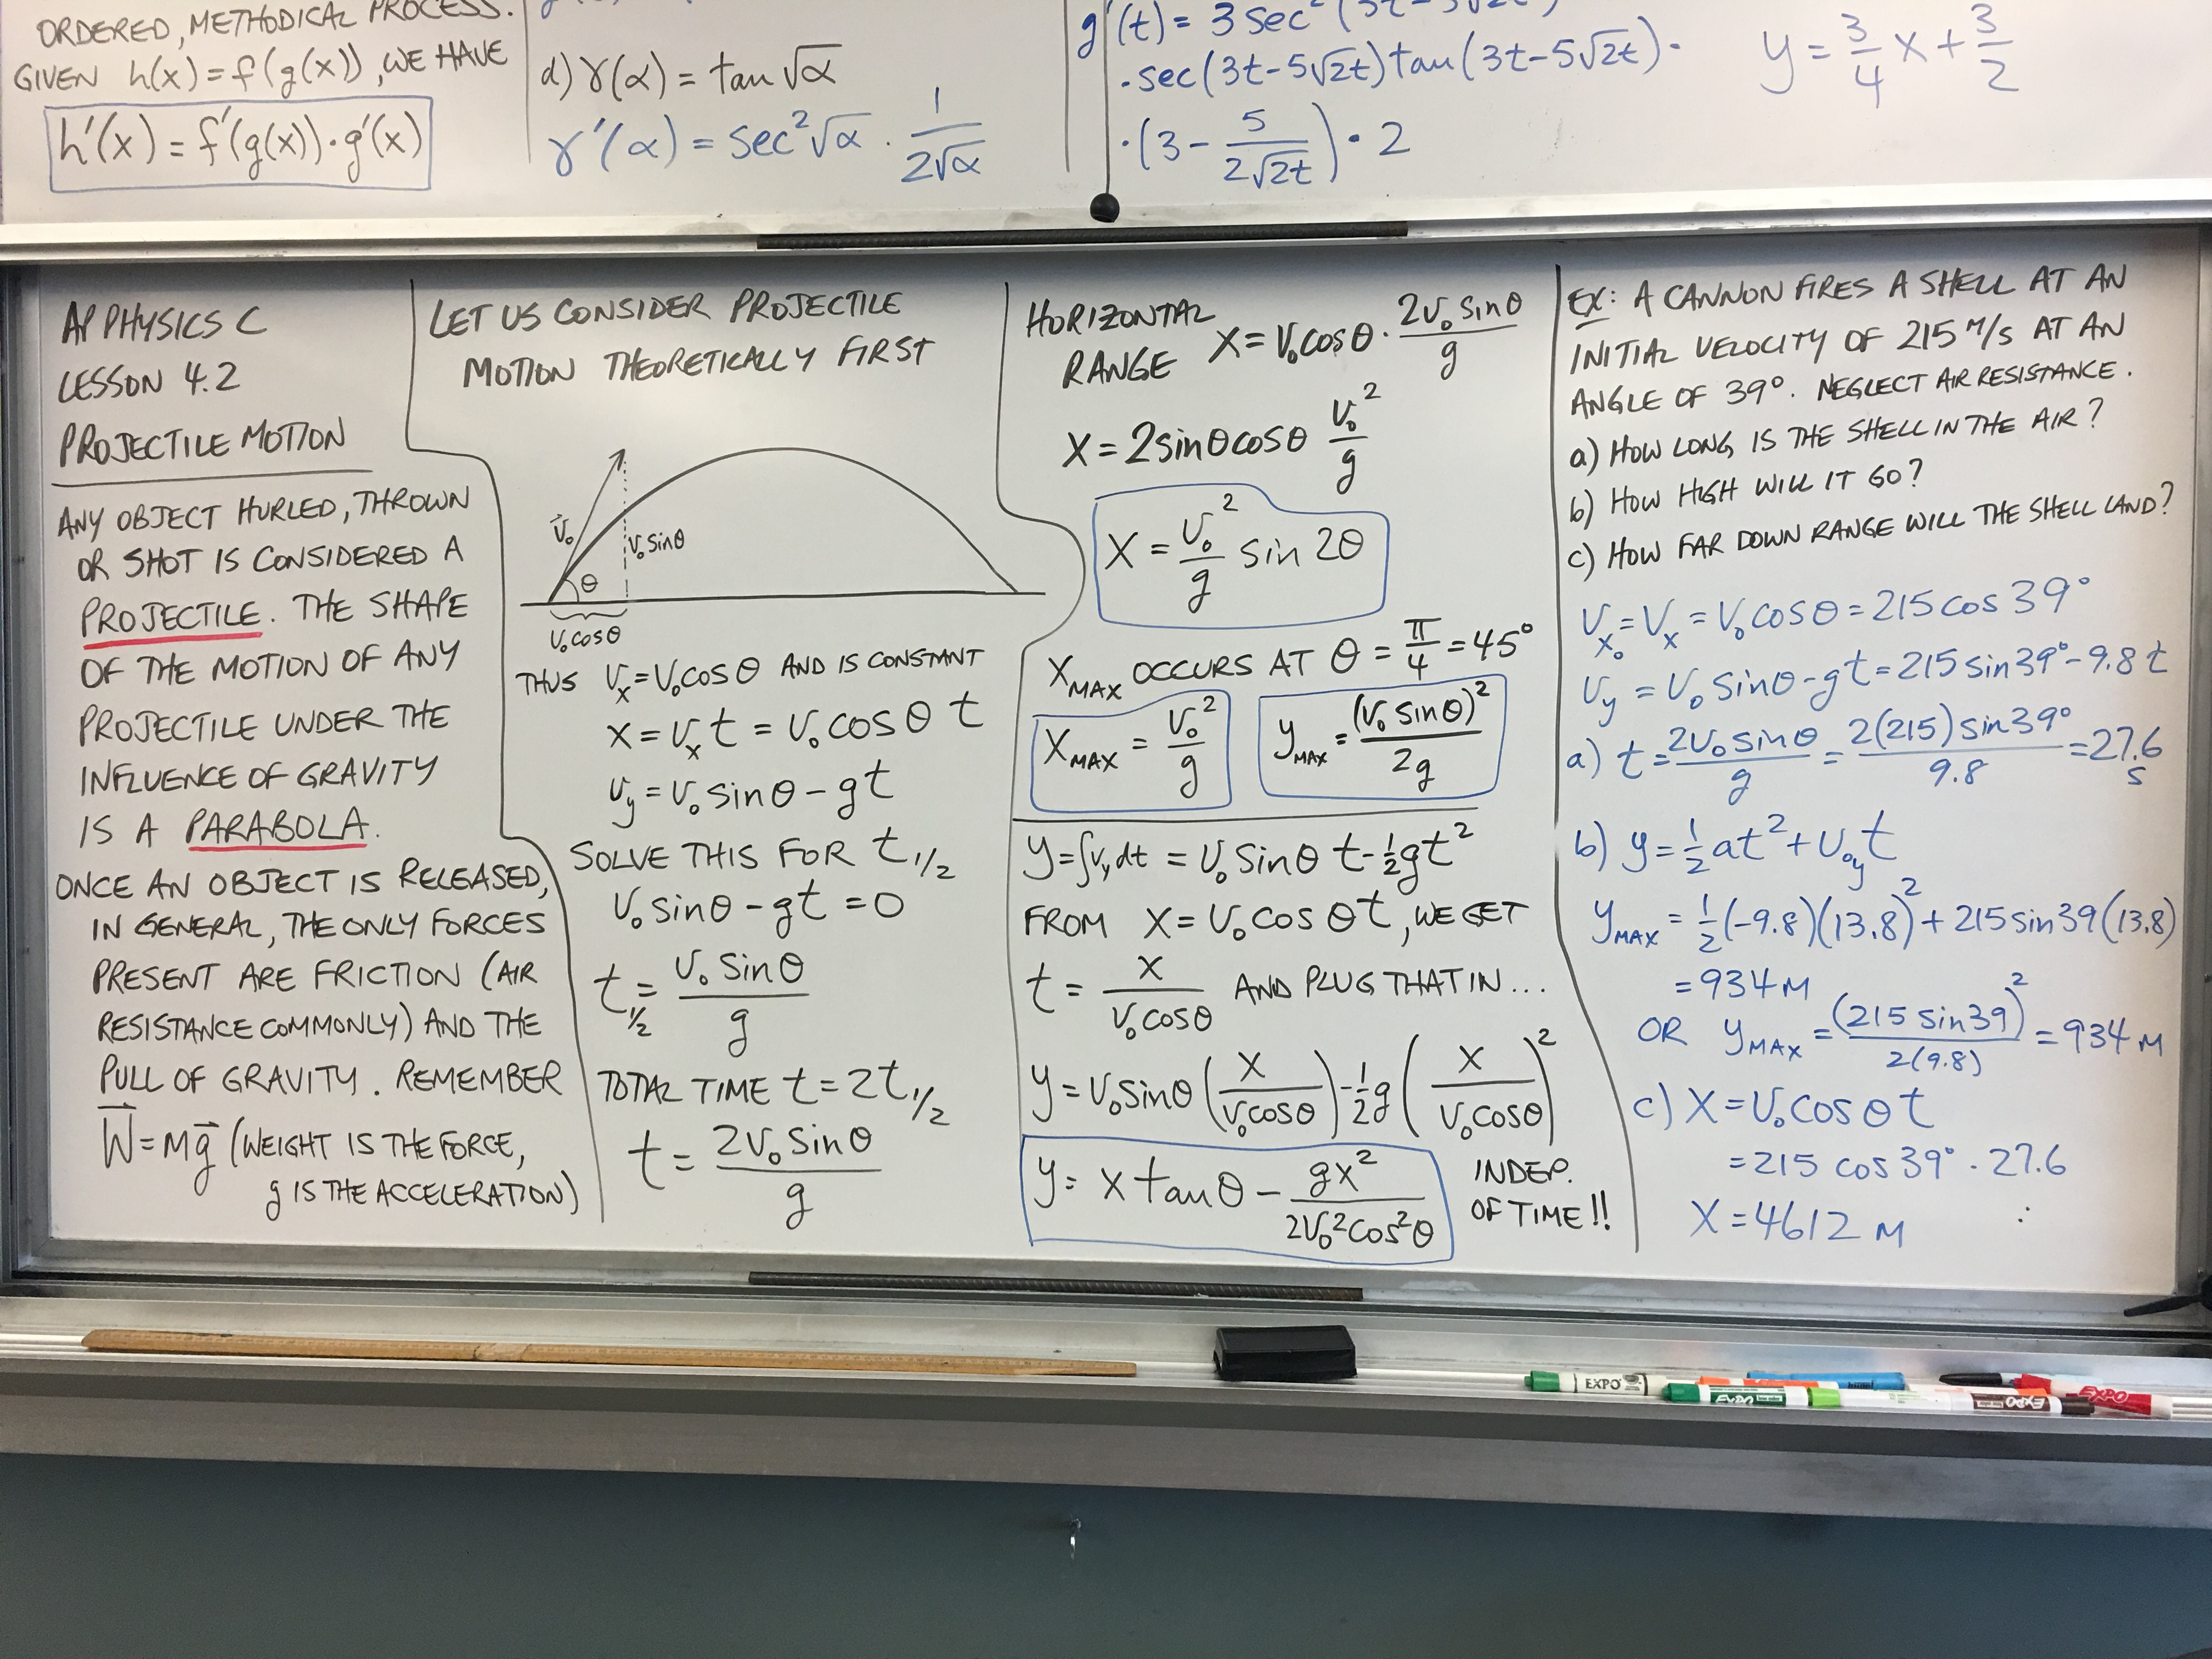 ORDERED, METHODICAL PROCESS.
GIVEN h(x) = f(g(x)), WE HAVE
h'(x) = f'(g(x))·g'(x)
d) γ(α) = tan √α
γ'(α) = sec²√α · 1/(2√α)
g'(t) = 3 sec²(3t-5√2t)
·sec(3t-5√2t)tan(3t-5√2t)·
·(3 - 5/(2√2t))·2
y = 3/4 x + 3/2
AP PHYSICS C
LESSON 4.2
PROJECTILE MOTION
ANY OBJECT HURLED, THROWN
OR SHOT IS CONSIDERED A
PROJECTILE. THE SHAPE
OF THE MOTION OF ANY
PROJECTILE UNDER THE
INFLUENCE OF GRAVITY
IS A PARABOLA.
ONCE AN OBJECT IS RELEASED,
IN GENERAL, THE ONLY FORCES
PRESENT ARE FRICTION (AIR
RESISTANCE COMMONLY) AND THE
PULL OF GRAVITY. REMEMBER
W⃗ = mg⃗ (WEIGHT IS THE FORCE,
g IS THE ACCELERATION)
LET US CONSIDER PROJECTILE
MOTION THEORETICALLY FIRST
v⃗₀
v₀ sinθ
θ
v₀cosθ
THUS vₓ = v₀cosθ AND IS CONSTANT
x = vₓt = v₀cosθ t
v_y = v₀ sinθ - gt
SOLVE THIS FOR t_1/2
v₀ sinθ - gt = 0
t_1/2 = v₀ sinθ / g
TOTAL TIME t = 2t_1/2
t = 2v₀ sinθ / g
HORIZONTAL
RANGE x = v₀cosθ · 2v₀ sinθ / g
x = 2sinθcosθ v₀²/g
x = v₀²/g sin 2θ
x_MAX OCCURS AT θ = π/4 = 45°
x_MAX = v₀²/g
y_MAX = (v₀ sinθ)²/2g
y = ∫v_y dt = v₀ sinθ t - ½gt²
FROM x = v₀cosθt, WE GET
t = x/(v₀cosθ) AND PLUG THAT IN...
y = v₀sinθ (x/(v₀cosθ)) - ½g (x/(v₀cosθ))²
y = x tanθ - gx²/(2v₀²cos²θ)
INDEP.
OF TIME!!
EX: A CANNON FIRES A SHELL AT AN
INITIAL VELOCITY OF 215 m/s AT AN
ANGLE OF 39°. NEGLECT AIR RESISTANCE.
a) HOW LONG IS THE SHELL IN THE AIR?
b) HOW HIGH WILL IT GO?
c) HOW FAR DOWN RANGE WILL THE SHELL LAND?
vₓ₀ = vₓ = v₀cosθ = 215 cos 39°
v_y = v₀ sinθ - gt = 215 sin39° - 9.8t
a) t = 2v₀ sinθ / g = 2(215) sin39° / 9.8 = 27.6 s
b) y = ½at² + v₀_y t
y_MAX = ½(-9.8)(13.8)² + 215 sin39(13.8)
= 934 m
OR y_MAX = (215 sin39)²/2(9.8) = 934 m
c) x = v₀cosθt
= 215 cos39° · 27.6
x = 4612 m ∴
EXPO
EXPO
EXPO
EXPO